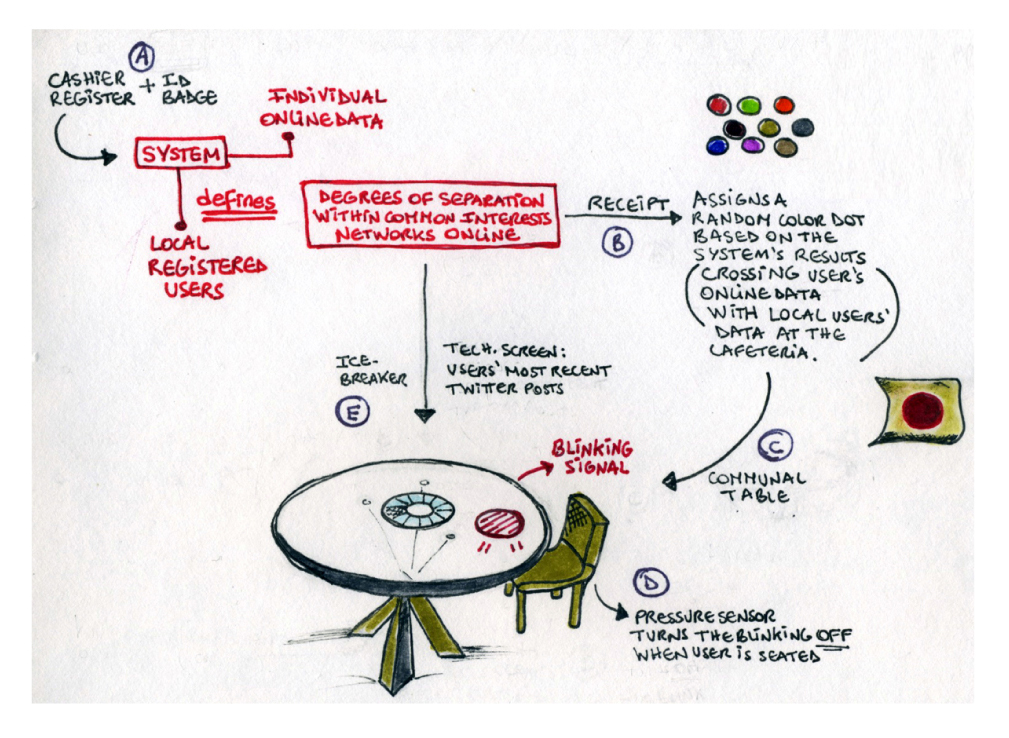 A
CASHIER + ID
REGISTER BADGE
SYSTEM
INDIVIDUAL
ONLINE DATA
LOCAL
REGISTERED
USERS
defines
DEGREES OF SEPARATION
WITHIN COMMON INTERESTS
NETWORKS ONLINE
RECEIPT
B
ASSIGNS A
RANDOM COLOR DOT
BASED ON THE
SYSTEM'S RESULTS
CROSSING USER'S
ONLINE DATA
WITH LOCAL USERS'
DATA AT THE
CAFETERIA.
C
COMMUNAL
TABLE
BLINKING
SIGNAL
D
PRESSURE SENSOR
TURNS THE BLINKING OFF
WHEN USER IS SEATED
ICE-
BREAKER
E
TECH. SCREEN:
USERS' MOST RECENT
TWITTER POSTS